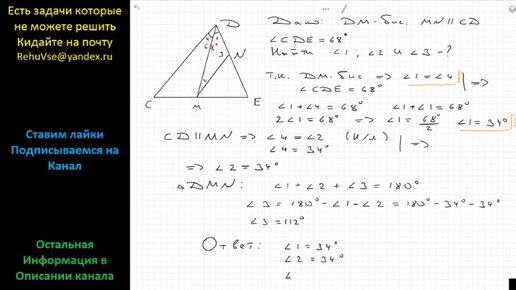 Есть задачи которые
не можете решить
Кидайте на почту
RehuVse@yandex.ru
Ставим лайки
Подписываемся на
Канал
Остальная
Информация в
Описании канала
D
68°
3 N
C M E
Дано: DM-бис. MN || CD
∠CDE = 68°
Найти ∠1; ∠2 и ∠3 - ?
Т.к. DM-бис => ∠1 = ∠4 | =>
∠CDE = 68°
∠1 + ∠4 = 68° ∠1 + ∠1 = 68°
2∠1 = 68° => ∠1 = 68°/2 ∠1 = 34°
CD || MN => ∠4 = ∠2 (н/л) | =>
∠4 = 34°
=> ∠2 = 34°
△DMN: ∠1 + ∠2 + ∠3 = 180°
∠3 = 180° - ∠1 - ∠2 = 180° - 34° - 34°
∠3 = 112°
Ответ: ∠1 = 34°
∠2 = 34°
∠